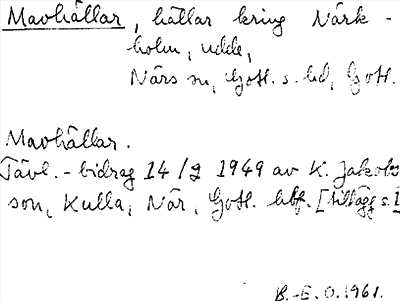 Mavhällar, hällar kring Närk-
holm, udde,
Närs sn, Gotl. s. hd, Gotl.
Mavhällar.
Tävl.-bidrag 14/2 1949 av K. Jakobs
son, Kulla, När, Gotl. [tillägg s. 1]
B.-E. O. 1961.